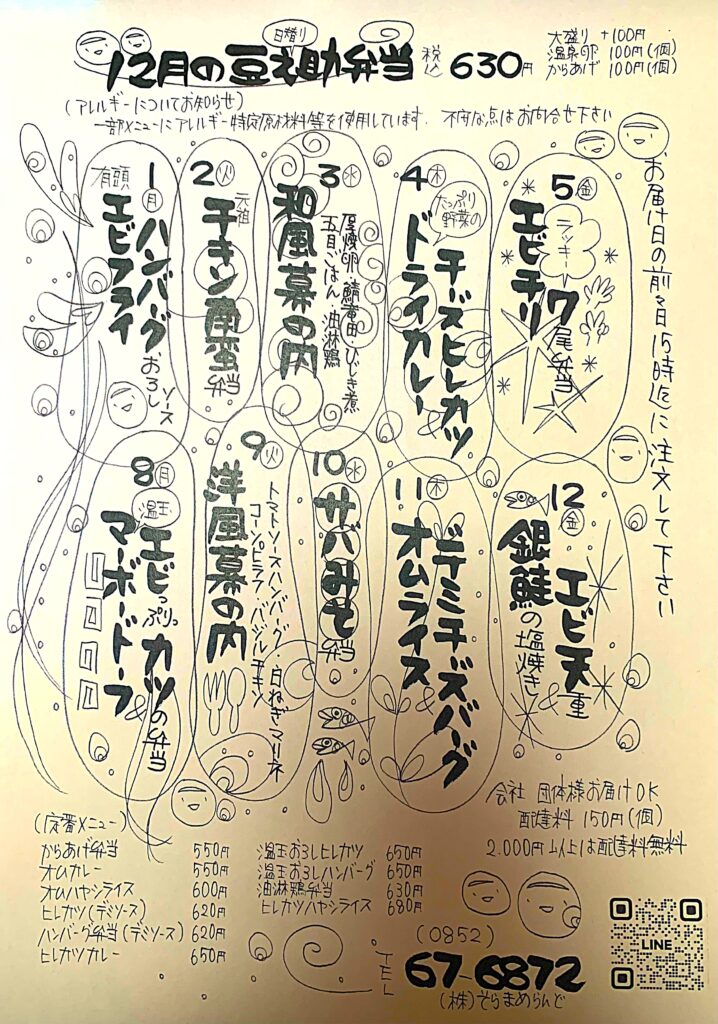 日替り
12月の豆之助弁当 税込 630円
大盛り +100円
温泉卵 100円(個)
からあげ 100円(個)
(アレルギーについてお知らせ)
一部メニューにアレルギー特定原材料等を使用しています. 不安な点はお問合せ下さい
お届け日の前々日15時迄に注文して下さい
1(月)
ハンバーグおろしソース
有頭エビフライ
2(火)
元祖
チキン南蛮弁当
3(水)
厚焼卵・鯖竜田・ひじき煮
五目ごはん 油淋鶏
和風幕の内
4(木)
たっぷり野菜の
チーズヒレカツ
&
ドライカレー
5(金)
ラッキー7尾弁当
エビチリ
8(月)
エビっぷりっカツの弁当
&
温玉
マーボードーフ
9(火)
トマトソースハンバーグ・白ねぎマリネ
コーンピラフ バジルチキン
洋風幕の内
10(水)
サバみそ弁当
11(木)
デミチーズバーグ
&
オムライス
12(金)
エビ天重
&
銀鮭の塩焼き
会社 団体様お届けOK
配達料 150円(個)
2.000円以上は配達料無料
(定番メニュー)
からあげ弁当 550円
オムカレー 550円
オムハヤシライス 600円
ヒレカツ(デミソース) 620円
ハンバーグ弁当(デミソース) 620円
ヒレカツカレー 650円
温玉おろしヒレカツ 650円
温玉おろしハンバーグ 650円
油淋鶏弁当 630円
ヒレカツハヤシライス 680円
TEL
(0852)
67-6872
(株)そらまめらんど
LINE